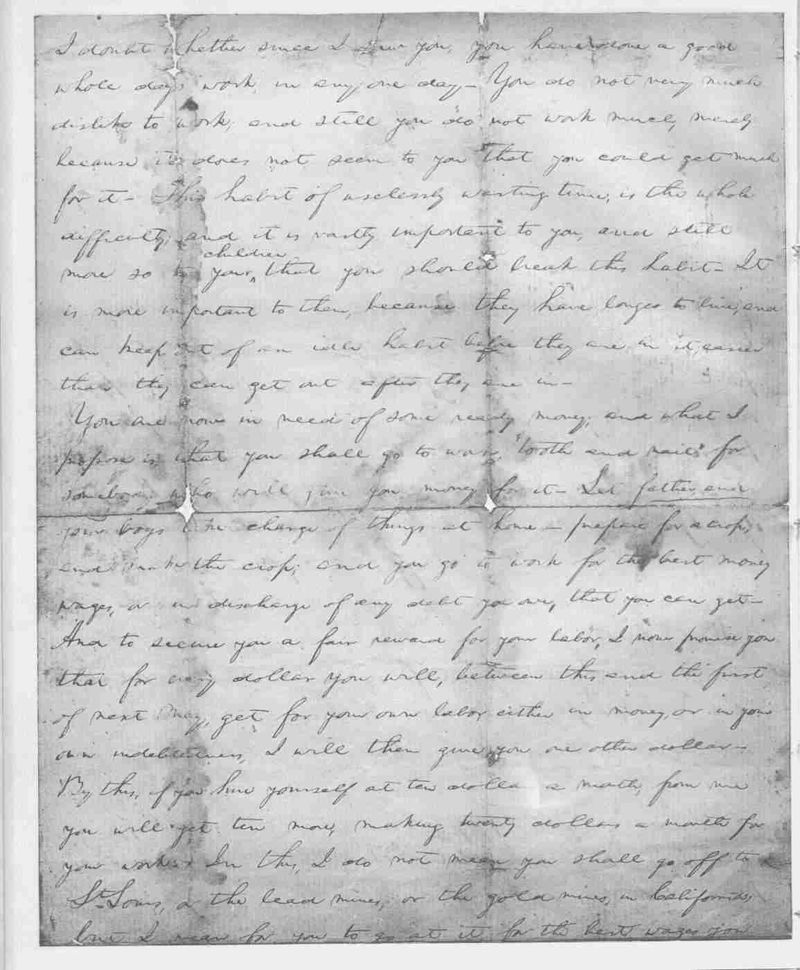 I doubt whether since I saw you, you have done a good
whole day's work, in any one day— You do not very much
dislike to work; and still you do not work much, merely
because it does not seem to you that you could get much
for it— This habit of uselessly wasting time, is the whole
difficulty; and it is vastly important to you, and still
children
more so to your, that you should break this habit— It
is more important to them, because they have longer to live, and
can keep out of an idle habit before they are in it, easier
than they can get out after they are in—
You are now in need of some ready money; and what I
propose is, that you shall go to work, "tooth and nails" for
somebody who will give you money for it— Let father and
your boys take charge of things at home— prepare for a crop,
and make the crop; and you go to work for the best money
wages, or in discharge of any debt you owe, that you can get—
And to secure you a fair reward for your labor, I now promise you
that for every dollar you will, between this and the first
of next May, get for your own labor either in money, or in your
own indebtedness, I will then give you one other dollar—
By this, if you hire yourself at ten dollars a month, from me
you will get ten more, making twenty dollars a month for
your work— In this, I do not mean you shall go off to
St. Louis, or the lead mines, or the gold mines, in California,
but I mean for you to go at it for the best wages you